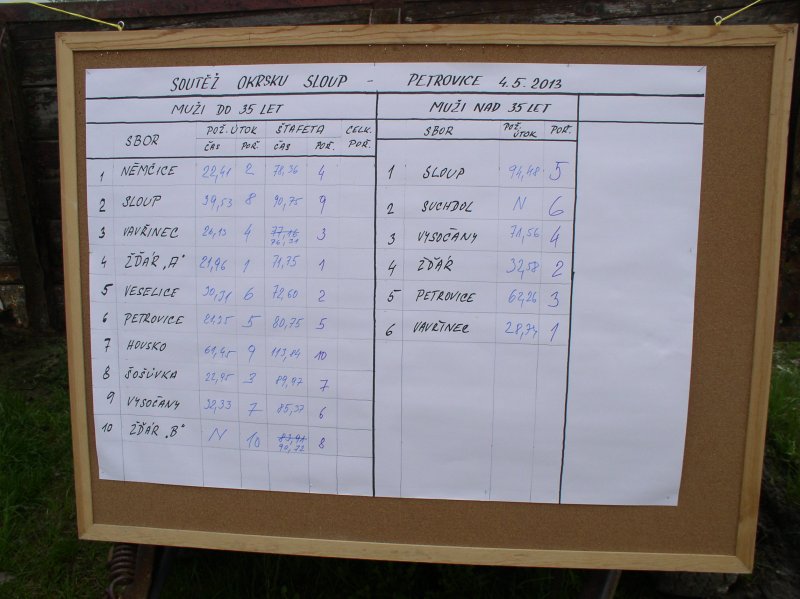 SOUTĚŽ OKRSKU SLOUP - PETROVICE 4.5.2013
MUŽI DO 35 LET
SBOR POŽ. ÚTOK ŠTAFETA CELK. POŘ.
ČAS POŘ. ČAS POŘ.
1 NĚMČICE 22,41 2 78,36 4
2 SLOUP 39,53 8 90,75 9
3 VAVŘINEC 26,13 4 77,16 76,21 3
4 ŽĎÁR "A" 21,96 1 71,75 1
5 VESELICE 30,31 6 72,60 2
6 PETROVICE 5 80,75 5
7 HOLSKO 61,45 9 113,84 10
8 ŠOŠŮVKA 22,95 3 89,97 7
9 VYSOČANY 32,33 7 85,37 6
10 ŽĎÁR "B" N 10 83,91 90,72 8
MUŽI NAD 35 LET
SBOR POŽ. ÚTOK POŘ.
1 SLOUP 94,48 5
2 SUCHDOL N 6
3 VYSOČANY 71,56 4
4 ŽĎÁR 32,58 2
5 PETROVICE 62,26 3
6 VAVŘINEC 28,74 1